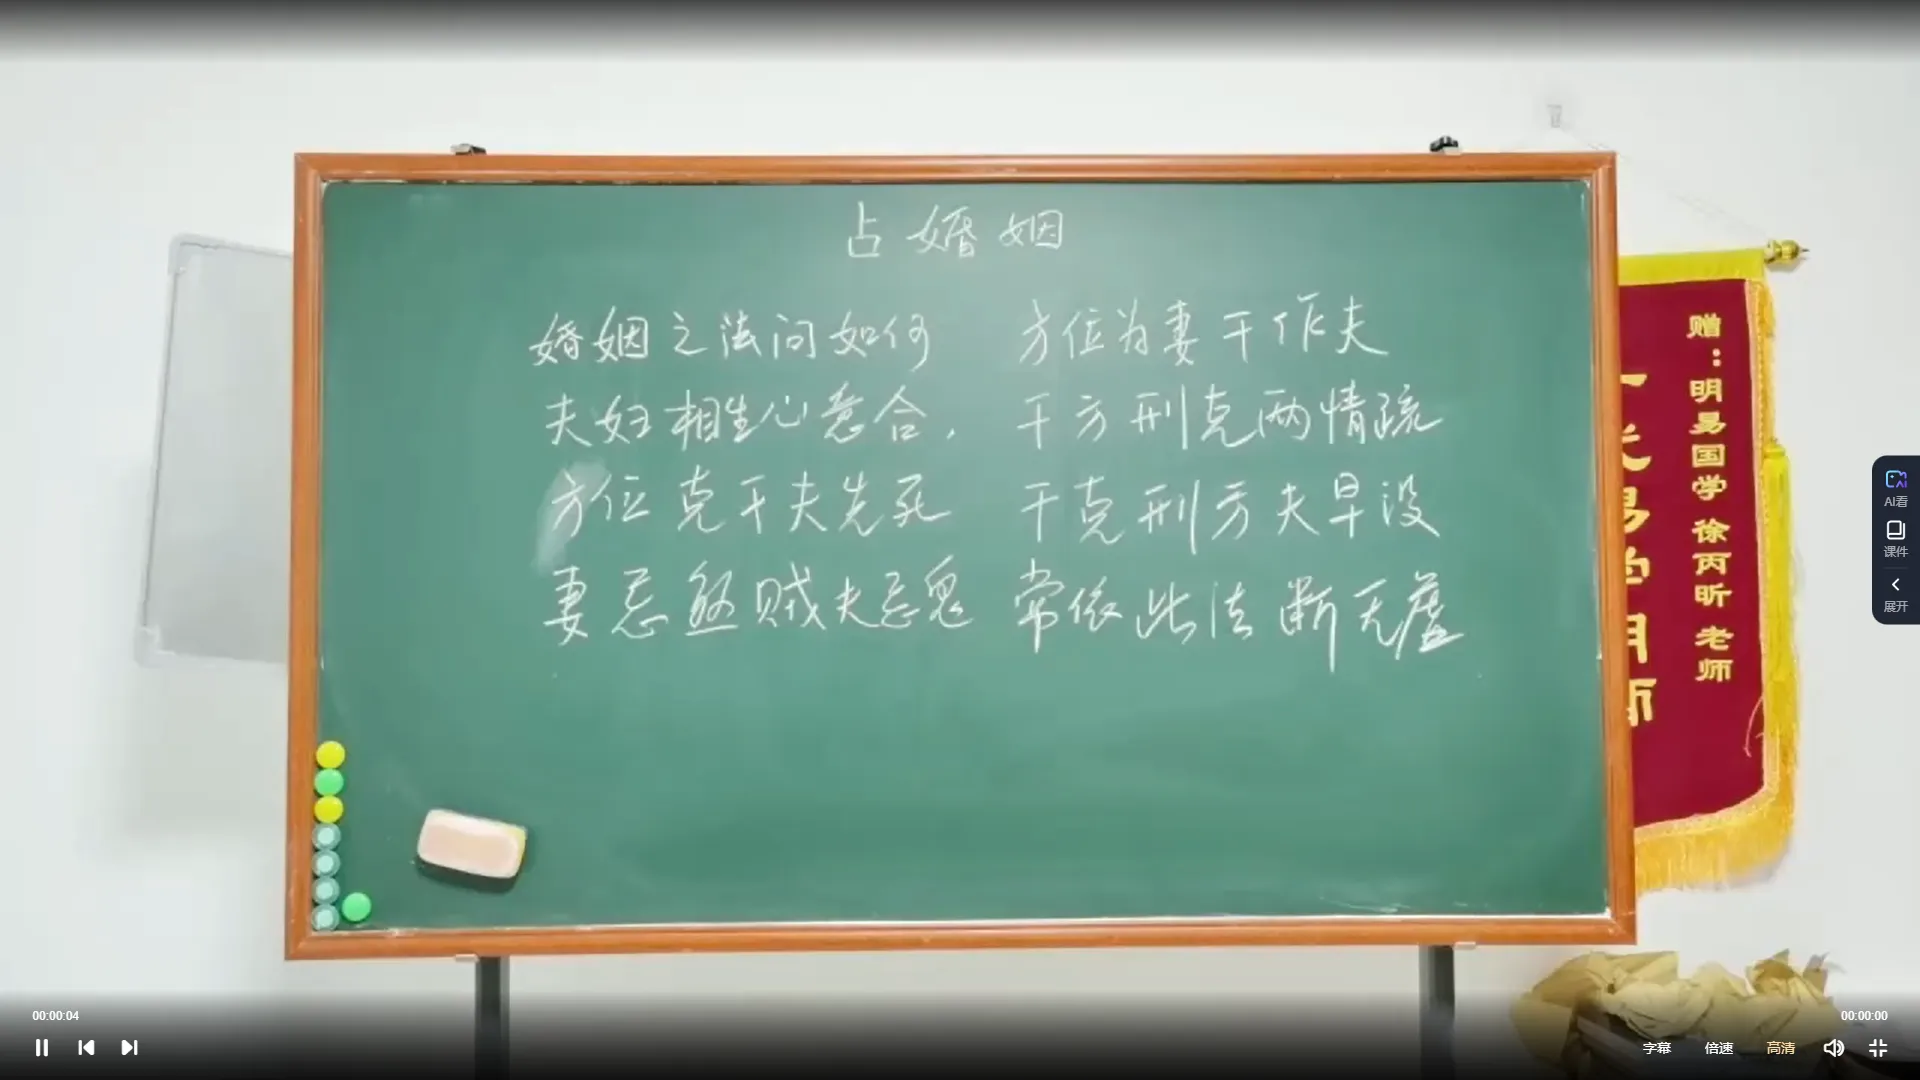 占婚姻
婚姻之法问如何 方位为妻干作夫
夫妇相生心意合， 干方刑克两情疏
方位克干夫先死 干克刑方夫早没
妻忌煞贼夫忌鬼 常依此法断无虚
赠：明易国学 徐丙昕 老师
AI看
课件
展开
00:00:04
00:00:00
字幕 倍速 高清